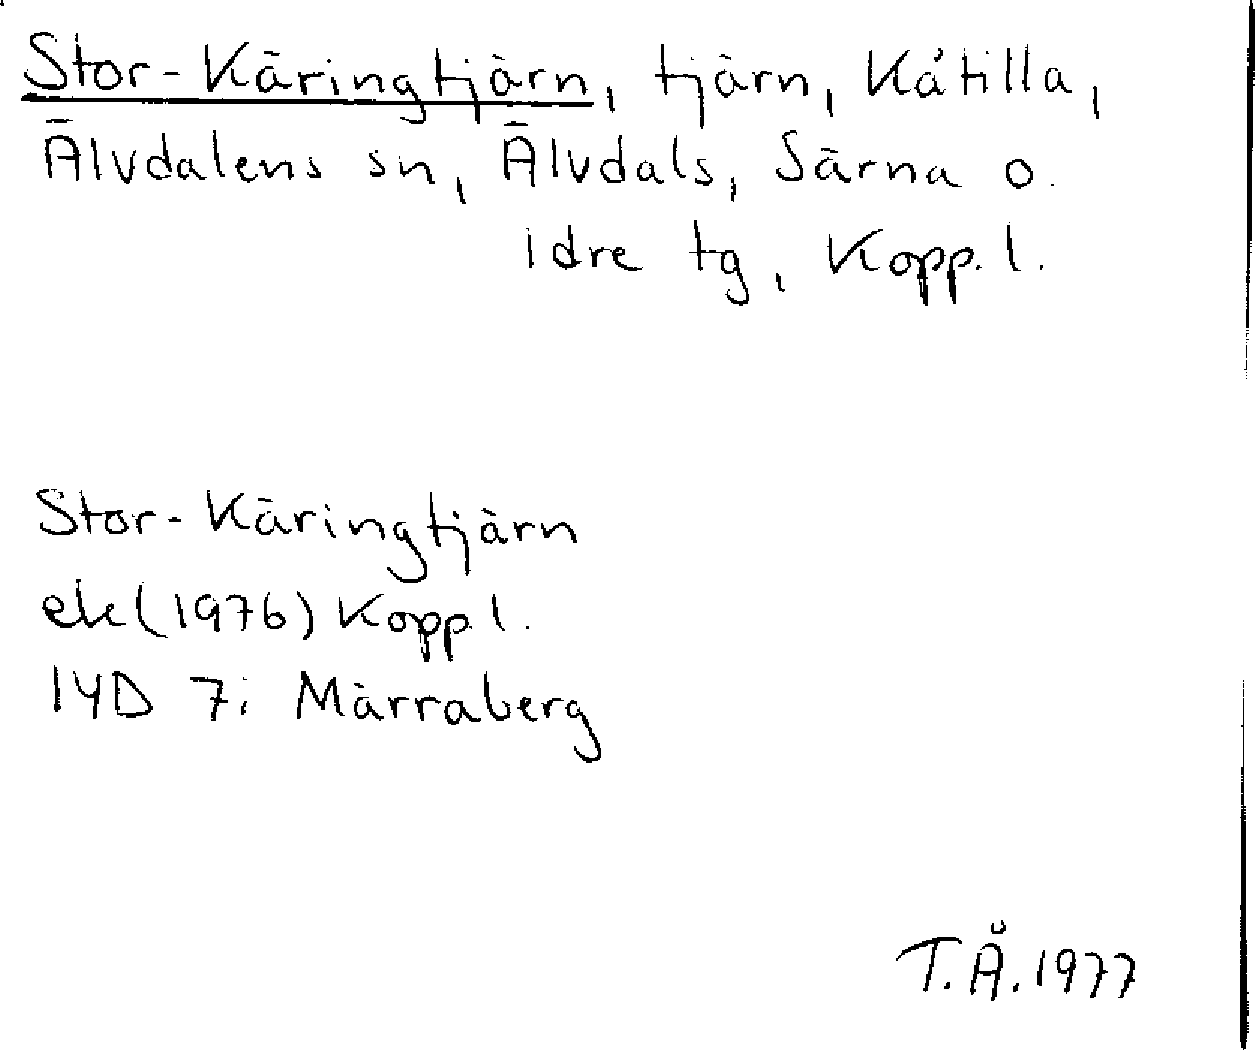 Stor-Käringtjärn, tjärn, Kåtilla,
Älvdalens sn, Älvdals, Särna o.
Idre tg, Kopp. l.
Stor-Käringtjärn
ek (1976) Kopp l.
14D 7i Märraberg
T.Å. 1977